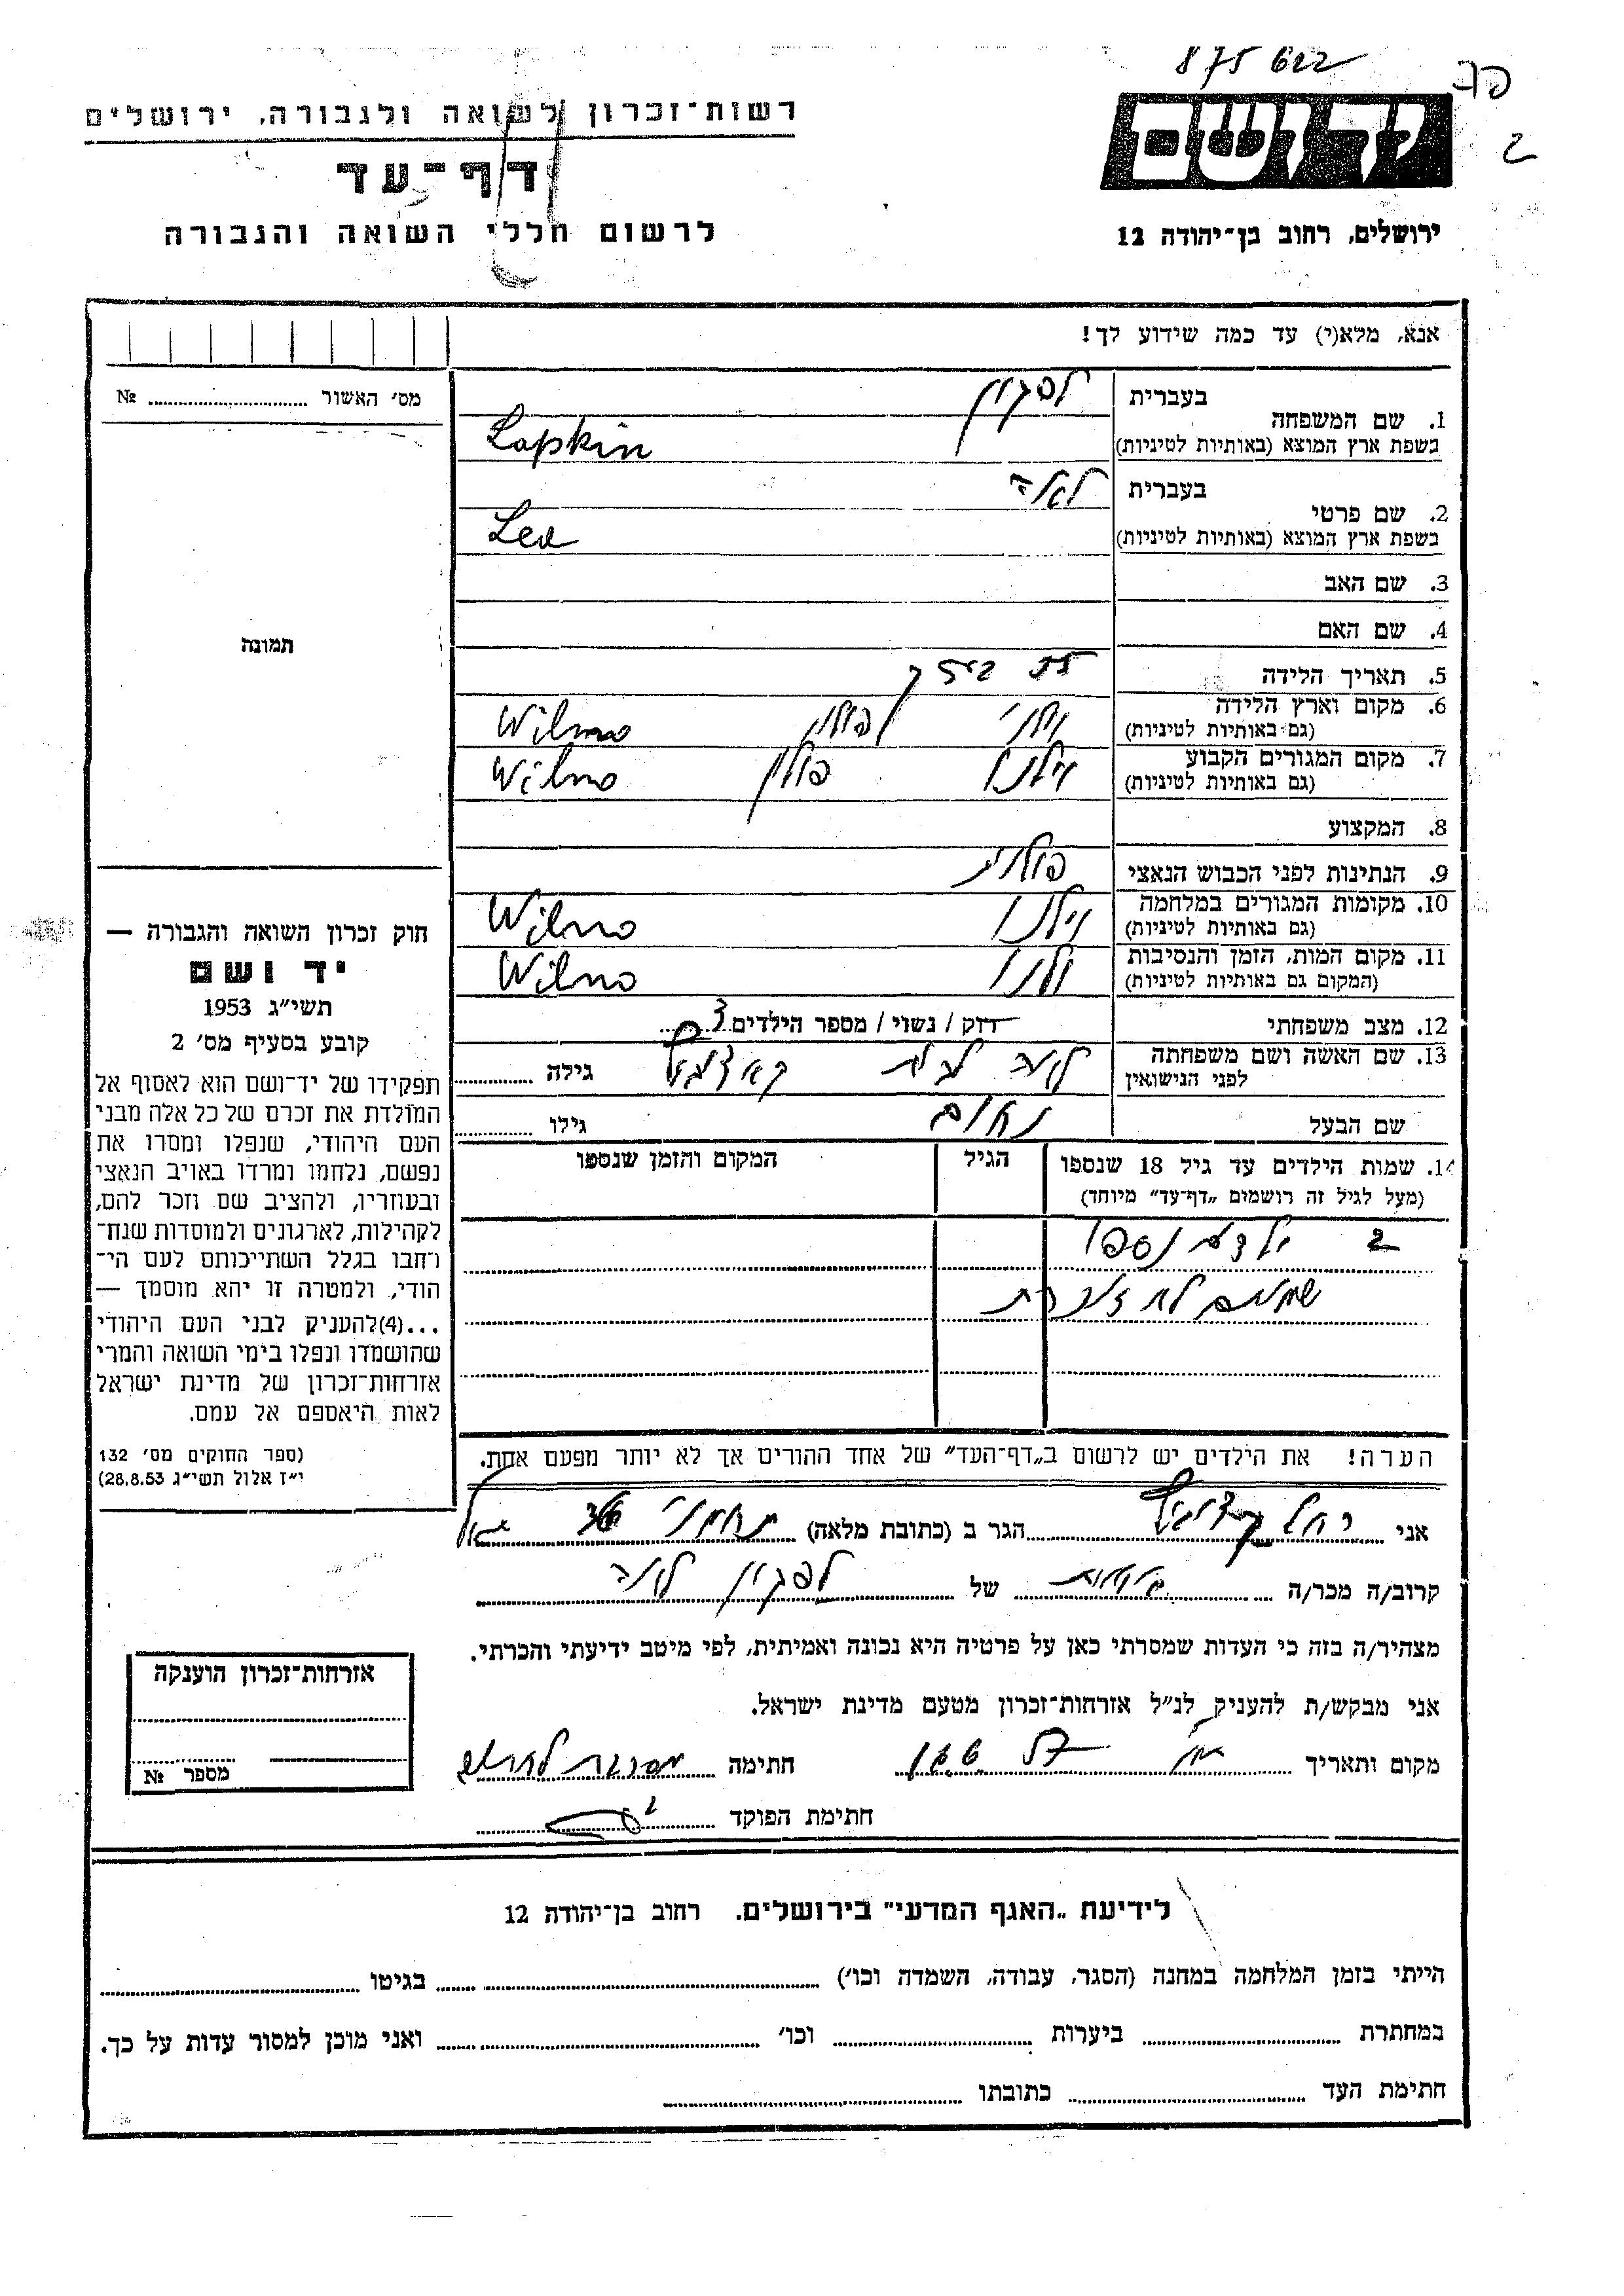 875622
דף
2
יד ושם
רשות־זכרון לשואה ולגבורה, ירושלים
דף־עד
לרשום חללי השואה והגבורה
ירושלים, רחוב בן־יהודה 12
אנא, מלא(י) עד כמה שידוע לך!
מס׳ האשור № 
תמונה
חוק זכרון השואה והגבורה —
יד ושם
תשי״ג 1953
קובע בסעיף מס׳ 2
תפקידו של יד־ושם הוא לאסוף אל
המולדת את זכרם של כל אלה מבני
העם היהודי, שנפלו ומסרו את
נפשם, נלחמו ומרדו באויב הנאצי
ובעוזריו, ולהציב שם וזכר להם,
לקהילות, לארגונים ולמוסדות שנח־
רחבו בגלל השתייכותם לעם הי־
הודי, ולמטרה זו יהא מוסמך —
...(4)להעניק לבני העם היהודי
שהושמדו ונפלו בימי השואה והמרי
אזרחות־זכרון של מדינת ישראל
לאות היאספם אל עמם.
(ספר החוקים מס׳ 132
י״ז אלול תשי״ג 28.8.53)
1. שם המשפחה בעברית לפקין
בשפת ארץ המוצא (באותיות לטיניות) Lapkin
2. שם פרטי בעברית לאה
בשפת ארץ המוצא (באותיות לטיניות) Lea
3. שם האב
4. שם האם
5. תאריך הלידה
6. מקום וארץ הלידה (גם באותיות לטיניות) פולין Wilno
7. מקום המגורים הקבוע (גם באותיות לטיניות) וילנו פולין Wilno
8. המקצוע
9. הנתינות לפני הכבוש הנאצי פולנית
10. מקומות המגורים במלחמה (גם באותיות לטיניות) וילנו Wilno
11. מקום המות, הזמן והנסיבות (המקום גם באותיות לטיניות) וילנו Wilno
12. מצב משפחתי רוק / נשוי / מספר הילדים 3
13. שם האשה ושם משפחתה לפני הנישואין לאה לבית גילה
שם הבעל נחום גילו
14. שמות הילדים עד גיל 18 שנספו הגיל המקום והזמן שנספו
(מעל לגיל זה רושמים „דף־עד״ מיוחד)
2 ילדים נספו
שמותם לא זוכרת
הערה! את הילדים יש לרשום ב„דף־העד״ של אחד ההורים אך לא יותר מפעם אחת.
אני רחל הגר ב (כתובת מלאה)
קרוב/ה מכר/ה של לפקין לאה
מצהיר/ה בזה כי העדות שמסרתי כאן על פרטיה היא נכונה ואמיתית, לפי מיטב ידיעתי והכרתי.
אני מבקש/ת להעניק לנ״ל אזרחות־זכרון מטעם מדינת ישראל.
מקום ותאריך חתימה
חתימת הפוקד
אזרחות־זכרון הוענקה
מספר №
לידיעת „האגף המדעי״ בירושלים. רחוב בן־יהודה 12
הייתי בזמן המלחמה במחנה (הסגר, עבודה, השמדה וכו׳) בגיטו
במחתרת ביערות וכו׳ ואני מוכן למסור עדות על כך.
חתימת העד כתובתו